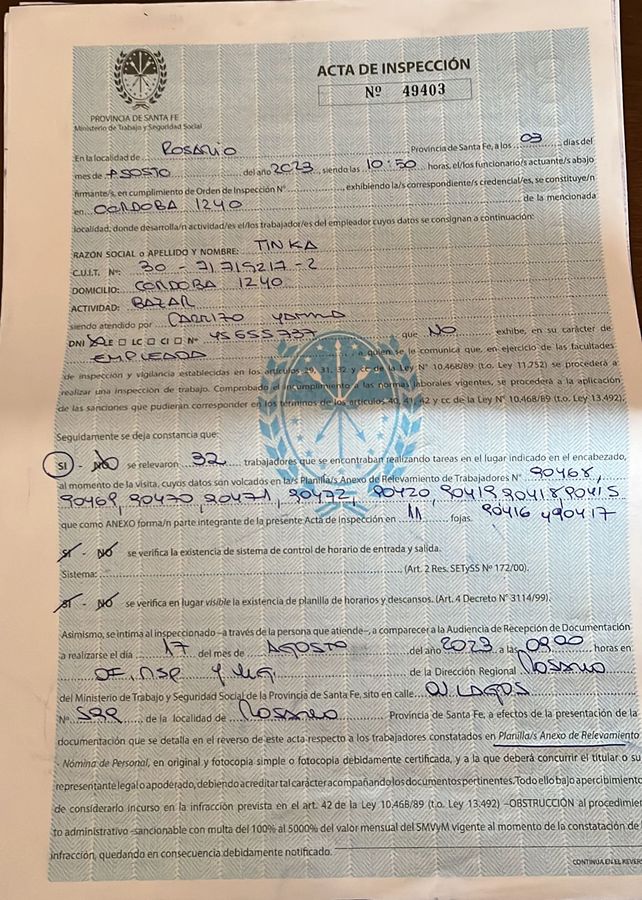 ACTA DE INSPECCIÓN
Nº 49403
PROVINCIA DE SANTA FE
Ministerio de Trabajo y Seguridad Social
En la localidad de ROSARIO Provincia de Santa Fe, a los 03 días del
mes de AGOSTO del año 2023, siendo las 10:50 horas, el/los funcionario/s actuante/s abajo
firmante/s, en cumplimiento de Orden de Inspección Nº exhibiendo la/s correspondiente/s credencial/es, se constituye/n
en CORDOBA 1240 de la mencionada
localidad, donde desarrolla/n actividad/es el/los trabajador/es del empleador cuyos datos se consignan a continuación:
RAZÓN SOCIAL o APELLIDO Y NOMBRE: TINKA
C.U.I.T. Nº: 30-71719217-2
DOMICILIO: CORDOBA 1240
ACTIVIDAD: BAZAR
siendo atendido por CARRIZO
DNI LE LC CI Nº 45655737 que NO exhibe, en su carácter de
EMPLEADA a quien se le comunica que, en ejercicio de las facultades
de inspección y vigilancia establecidas en los artículos 29, 31, 32 y cc de la Ley Nº 10.468/89 (t.o. Ley 11.752) se procederá a
realizar una inspección de trabajo. Comprobado el incumplimiento a las normas laborales vigentes, se procederá a la aplicación
de las sanciones que pudieran corresponder en los términos de los artículos 40, 41, 42 y cc de la Ley Nº 10.468/89 (t.o. Ley 13.492).
Seguidamente se deja constancia que:
SI - NO se relevaron 32 trabajadores que se encontraban realizando tareas en el lugar indicado en el encabezado,
al momento de la visita, cuyos datos son volcados en la/s Planilla/s Anexo de Relevamiento de Trabajadores Nº 90468,
90469, 90470, 90471, 90472, 90420, 90419 90418 90415
que como ANEXO forma/n parte integrante de la presente Acta de Inspección en 11 fojas. 90416 y 90417
SI - NO se verifica la existencia de sistema de control de horario de entrada y salida.
Sistema: (Art. 2 Res. SETySS Nº 172/00).
SI - NO se verifica en lugar visible la existencia de planilla de horarios y descansos. (Art. 4 Decreto Nº 3114/99).
Asimismo, se intima al inspeccionado –a través de la persona que atiende–, a comparecer a la Audiencia de Recepción de Documentación
a realizarse el día 17 del mes de AGOSTO del año 2023, a las 09:00 horas en
de la Dirección Regional ROSARIO
del Ministerio de Trabajo y Seguridad Social de la Provincia de Santa Fe, sito en calle OV. LAGOS
Nº 599, de la localidad de ROSARIO Provincia de Santa Fe, a efectos de la presentación de la
documentación que se detalla en el reverso de este acta respecto a los trabajadores constatados en Planilla/s Anexo de Relevamiento
- Nómina de Personal, en original y fotocopia simple o fotocopia debidamente certificada, y a la que deberá concurrir el titular o su
representante legal o apoderado, debiendo acreditar tal carácter acompañando los documentos pertinentes. Todo ello bajo apercibimiento
de considerarlo incurso en la infracción prevista en el art. 42 de la Ley 10.468/89 (t.o. Ley 13.492) –OBSTRUCCIÓN al procedimien
to administrativo –sancionable con multa del 100% al 5000% del valor mensual del SMVyM vigente al momento de la constatación de l
infracción, quedando en consecuencia debidamente notificado.
CONTINUA EN EL REVERS